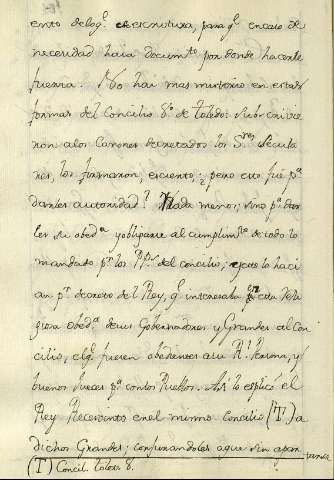 ento de los q.e escritura, para q.e en caso de
necesidad haia docum.to por donde hacerle
fuerza. No hai mas misterio en estas
formas del Concilio 8.o de toledo: subscrivie
ron a los Canones decretados los S.res Secula
res, los firmaron, es cierto; pero esto fué p.a
darles autoridad? Nada menos; sino p.a
su obed.a y obligarse al cumplim.to de todo lo
mandado p.r los P.P. del concilio; esto lo haci
an p.r decreto del Rey, q.e interesaba en esta
obed.a de sus Gobernadores y Grandes al Con
cilio, el q.e fuesen obedientes a su R.l Persona, y
buenos Jueces p.a con los Pueblos. Asi lo esplicó el
Rey Recesvinto en el mismo concilio (T) a
dichos Grandes; conjurandoles a que sin apar
tarse
(T) Concil. tolet. 8.